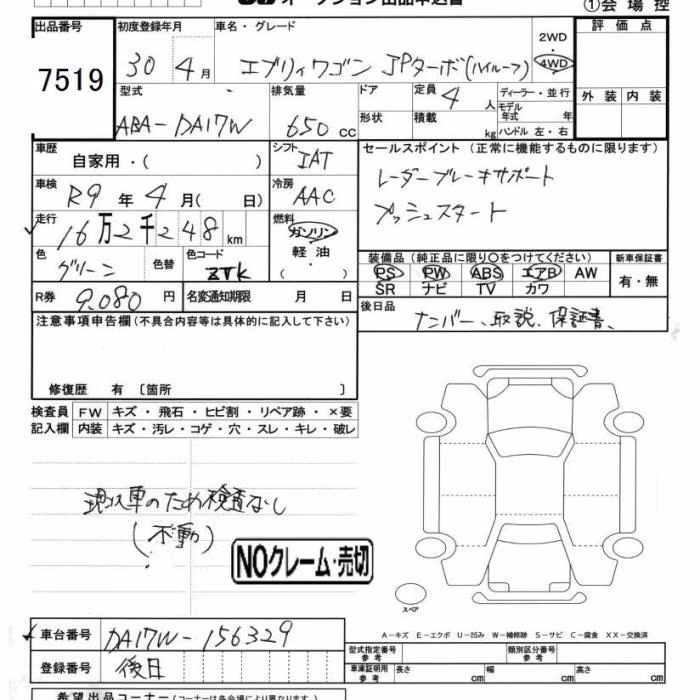 オークション出品申込書
①会場控
出品番号 初度登録年月 車名・グレード 2WD・4WD 評価点
7519 30 4月 エブリィワゴン JPターボ(ハイルーフ)
型式 排気量 ドア 定員 4人 ディーラー・並行 外装 内装
ABA-DA17W 650cc 形状 積載 kg モデル年式 年 ハンドル 左・右
車歴 自家用・( ) シフト IAT セールスポイント(正常に機能するものに限ります)
車検 R9年4月( 日) 冷房 AAC レーダーブレーキサポート
走行 16万2千248km 燃料 ガソリン・軽油・( ) プッシュスタート
色 グリーン 色替 色コード ZTK 装備品(純正品に限り○をつけてください) 新車保証書
PS PW ABS エアB AW 有・無
SR ナビ TV カワ
R券 9.080円 名変通知期限 月 日 後日品 ナンバー、取説、保証書、
注意事項申告欄(不具合内容等は具体的に記入して下さい)
修復歴 有〔箇所 〕
検査員 FW キズ・飛石・ヒビ割・リペア跡・×要
記入欄 内装 キズ・汚レ・コゲ・穴・スレ・キレ・破レ
現状車のため検査なし
(不動)
NOクレーム・売切
スペア
車台番号 DA17W-156329
A-キズ E-エクボ U-凹み W-補修跡 S-サビ C-腐食 XX-交換済
型式指定番号 参考 類別区分番号 参考
登録番号 後日 車庫証明用 参考 長さ cm 幅 cm 高さ cm
希望出品コーナー(コーナーは各会場により異なります。)